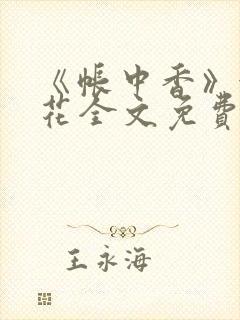 《帐中香》
花全文免费
王永海